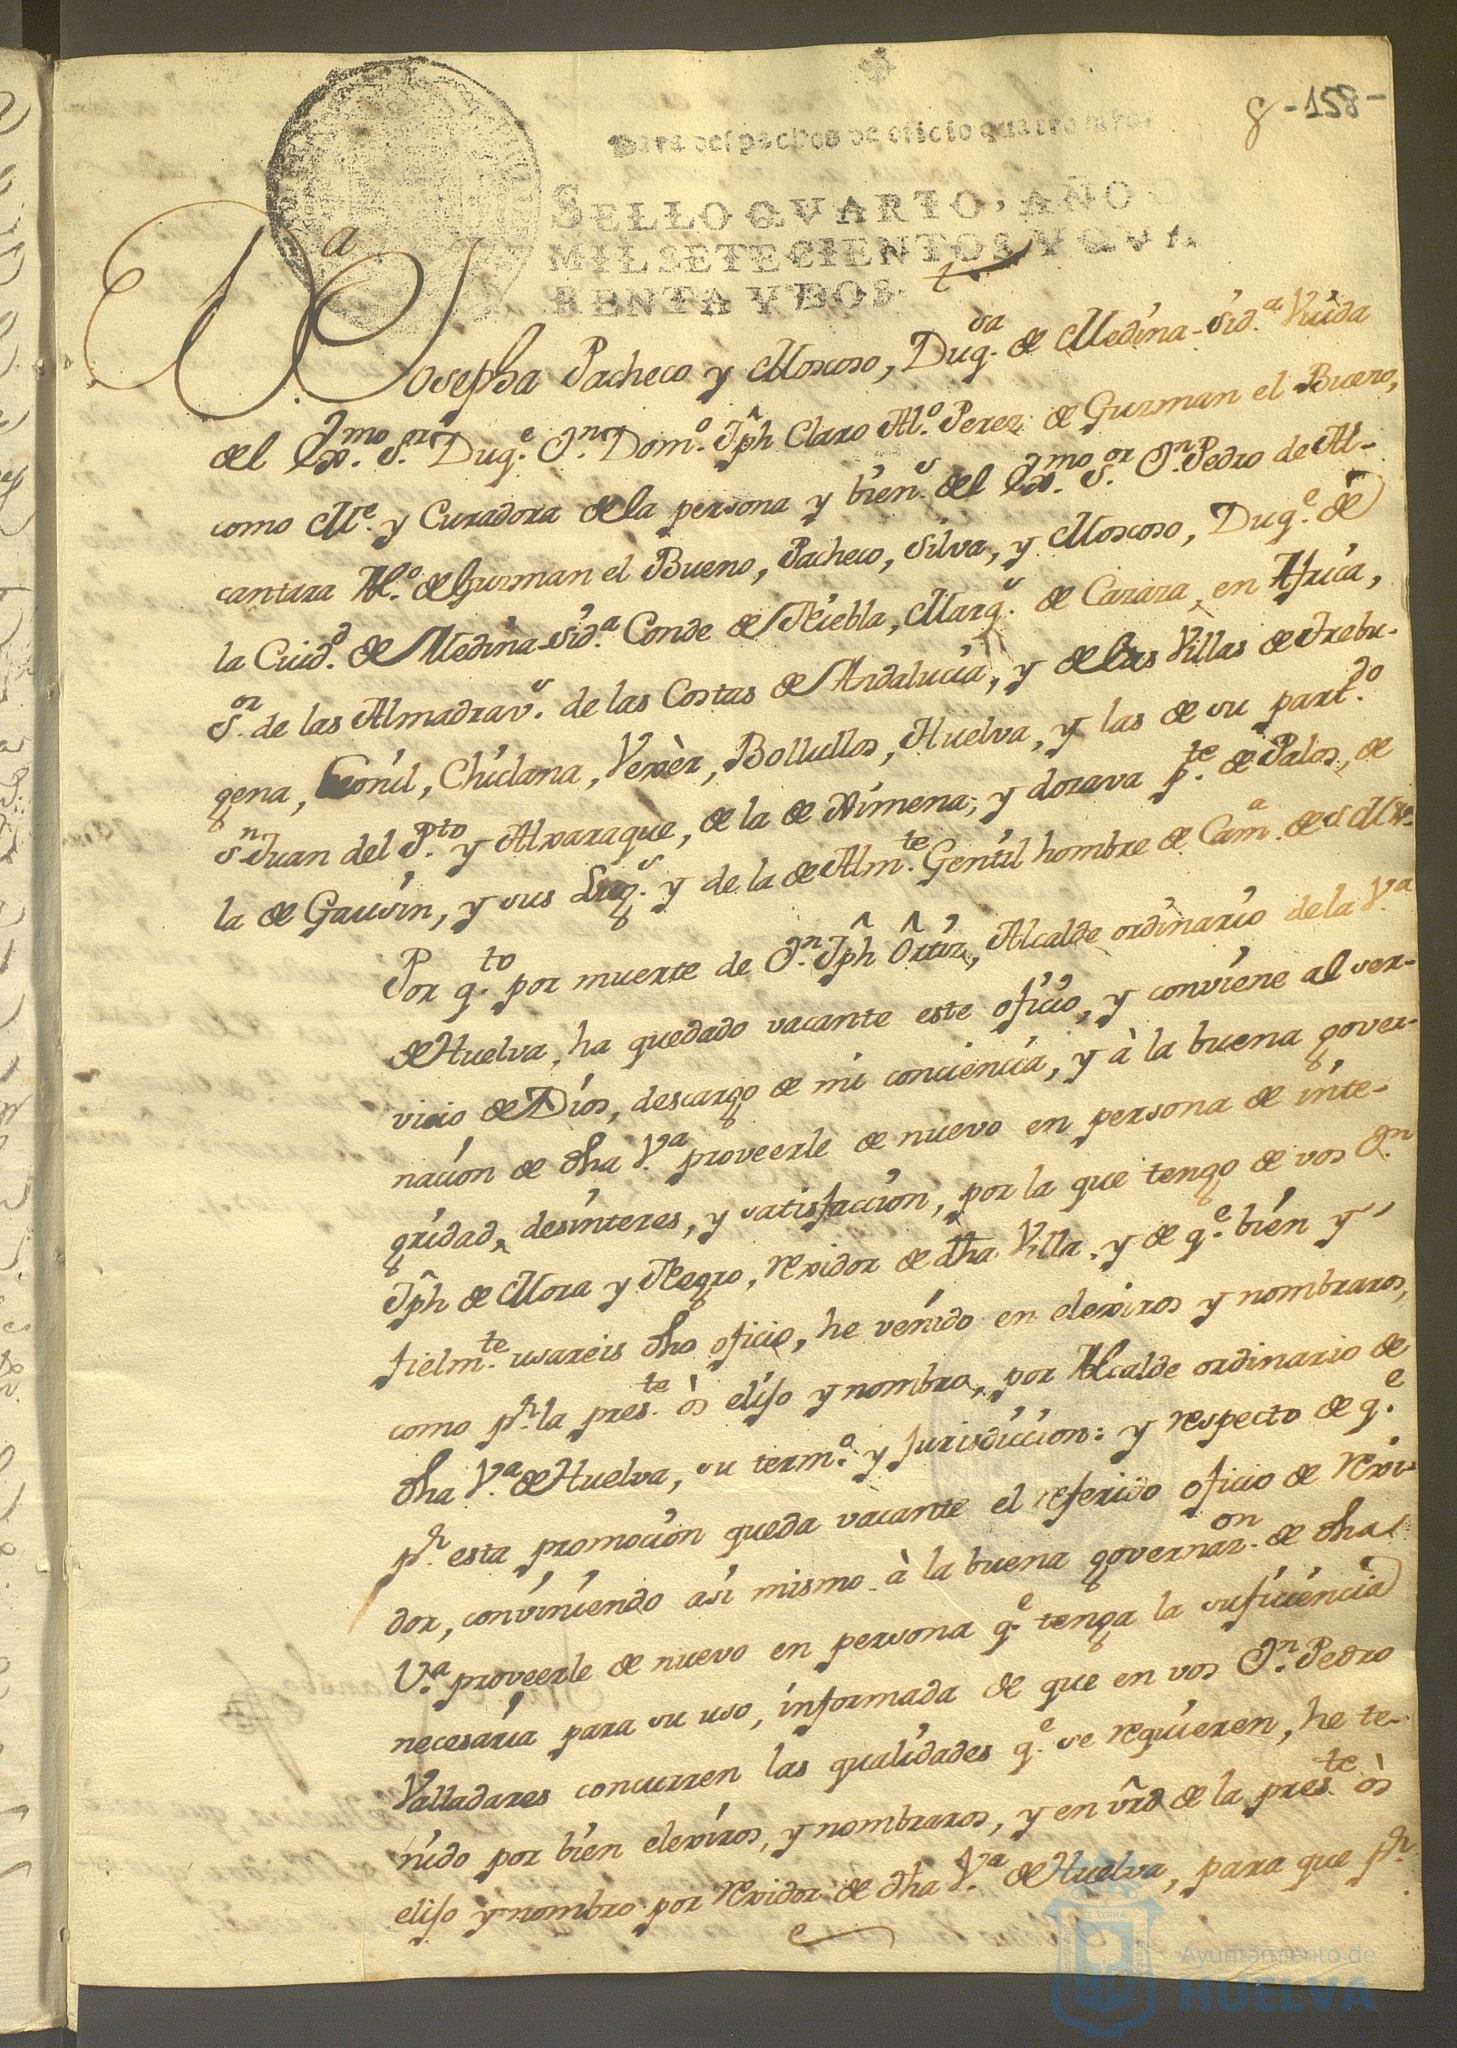 8 -158-
Para despachos de oficio quatro mrs.
SELLO QVARTO, AÑO DE
MIL SETECIENTOS Y QVA
RENTA Y DOS.
D.ª Josepha Pacheco y Moscoso, Duq.sa de Medina-Sid.ª Viuda
del Ex.mo S.or Duq.e D.n Dom.o Jph Claro Al.o Perez de Guzman el Bueno,
como M.e y Curadora de la persona y bien.s del Ex.mo S.or D.n Pedro de Al-
cantara Al.o de Guzman el Bueno, Pacheco, Silva, y Moscoso, Duq.e de
la Ciud.d de Medina-Sid.ª Conde de Niebla, Marq.s de Cazaza, en Africa,
S.or de las Almadrav.s de las Costas de Andalucia, y de las Villas de Trebu-
gena, Conil, Chiclana, Vexèr, Bollullos, Huelva, y las de su part.do
S.n Juan del P.to y Alxaraque, de la de Ximena, y dozava p.te de Palos, de
la de Gausin, y sus Lug.s y de la de Alm.te Gentil hombre de Cam.a de S M &.
Por q.to por muerte de D.n Jph Ortiz, Alcalde ordinario de la V.a
de Huelva, ha quedado vacante este oficio, y conviene al ser-
vicio de Dios, descargo de mi conciencia, y à la buena gover-
nacion de dha V.a proveerle de nuevo en persona de inte-
gridad, desinteres, y satisfaccion, por la que tengo de vos D.n
Jph de Mora y Negro, rexidor de dha Villa, y de q.e bien y
fielm.te usareis dho oficio, he venido en elexiros y nombraros,
como p.r la pres.te òs elijo y nombro, por Alcalde ordinario de
dha V.a de Huelva, su term.o y Jurisdiccion: y respecto de q.e
p.r esta promocion queda vacante el referido oficio de rexi-
dor, conviniendo asi mismo à la buena governaz.on de dha
V.a proveerle de nuevo en persona q.e tenga la suficiencia
necesaria para su uso, informada de que en vos D.n Pedro
Valladares concurren las qualidades q.e se requieren, he te-
nido por bien elexiros, y nombraros, y en vrd de la pres.te òs
elijo y nombro por rexidor de dha V.a de Huelva, para que p.r
Ayuntamiento de
HUELVA